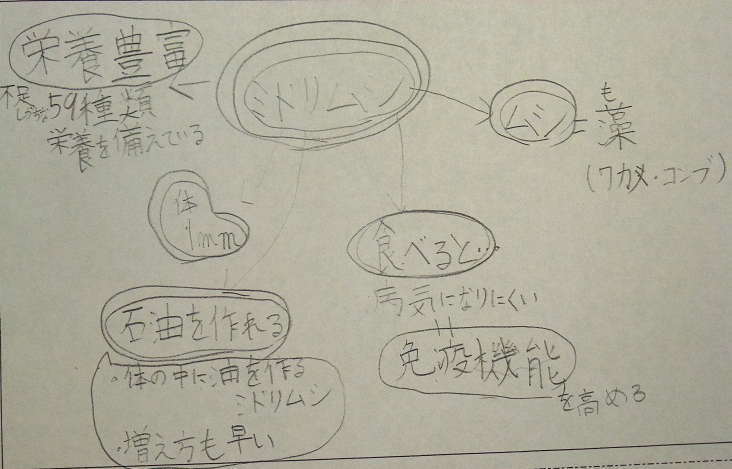 栄養豊富
不足しがちな59種類
栄養を備えている
ミドリムシ
ムシ=藻
も
(ワカメ・コンブ)
体
1mm
食べると…
病気になりにくい
=
免疫機能
を高める
石油を作れる
・体の中に油を作る
ミドリムシ
・増え方も早い